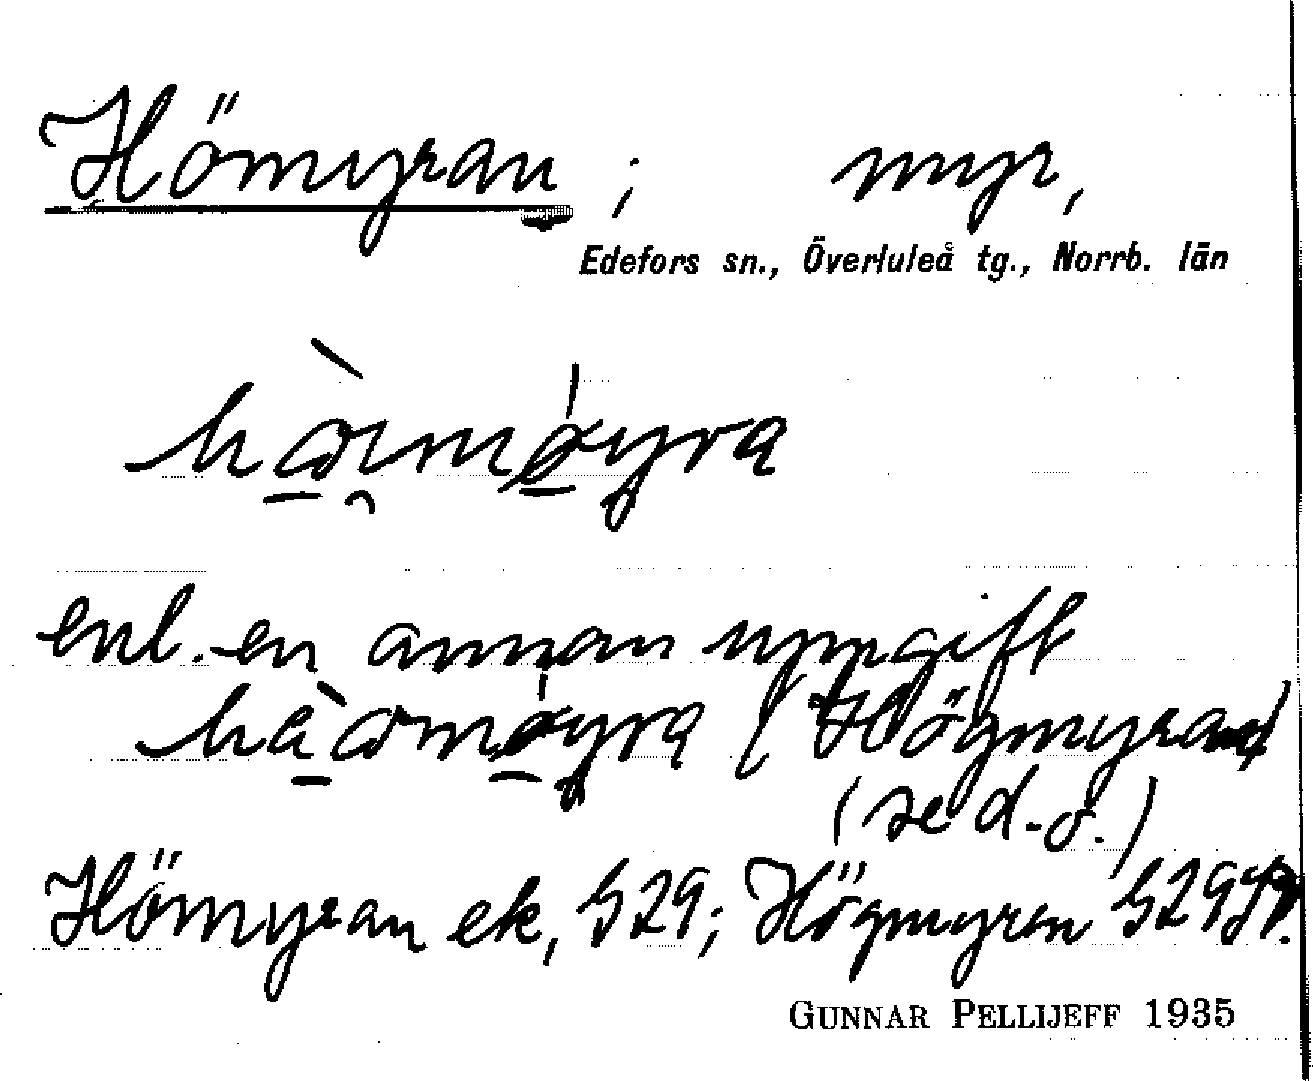 Hömyran ; myr,
Edefors sn., Överluleå tg., Norrb. län
enl. en annan uppgift
(Högmyran)
(se d.o.)
Hömyran ek, 529; Högmyren 529
GUNNAR PELLIJEFF 1935